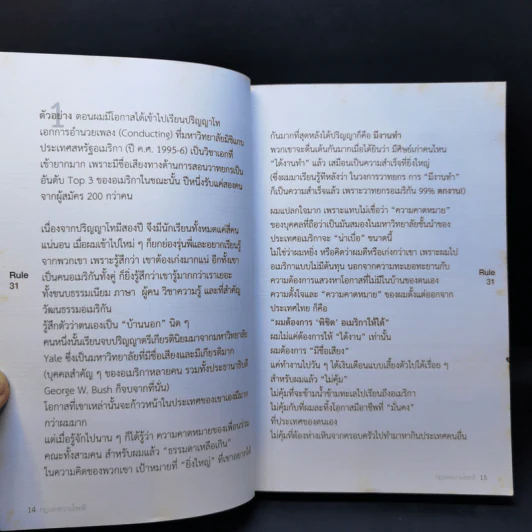 1
ตัวอย่าง ตอนผมมีโอกาสได้เข้าไปเรียนปริญญาโท
เอกการอำนวยเพลง (Conducting) ที่มหาวิทยาลัยมิชิแกน
ประเทศสหรัฐอเมริกา (ปี ค.ศ. 1995-6) เป็นวิชาเอกที่
เข้ายากมาก เพราะมีชื่อเสียงทางด้านการสอนวาทยกรเป็น
อันดับ Top 3 ของอเมริกาในขณะนั้น ปีหนึ่งรับแค่สองคน
จากผู้สมัคร 200 กว่าคน
เนื่องจากปริญญาโทมีสองปี จึงมีนักเรียนทั้งหมดแค่สี่คน
แน่นอน เมื่อผมเข้าไปใหม่ ๆ ก็ยกย่องรุ่นพี่และอยากเรียนรู้
จากพวกเขา เพราะรู้สึกว่า เขาต้องเก่งมากแน่ อีกทั้งเขา
เป็นคนอเมริกันทั้งคู่ ก็ยิ่งรู้สึกว่าเขารู้มากกว่าเราเยอะ
ทั้งขนบธรรมเนียม ภาษา ผู้คน วิชาความรู้ และที่สำคัญ
วัฒนธรรมอเมริกัน
รู้สึกตัวว่าตนเองเป็น "บ้านนอก" นิด ๆ
คนหนึ่งนั้นเรียนจบปริญญาตรีเกียรตินิยมมาจากมหาวิทยาลัย
Yale ซึ่งเป็นมหาวิทยาลัยที่มีชื่อเสียงและมีเกียรติมาก
(บุคคลสำคัญ ๆ ของอเมริกาหลายคน รวมทั้งประธานาธิบดี
George W. Bush ก็จบจากที่นั่น)
โอกาสที่เขาเหล่านั้นจะก้าวหน้าในประเทศของเขาเองมีมาก
กว่าผมมาก
แต่เมื่อรู้จักไปนาน ๆ ก็ได้รู้ว่า ความคาดหมายของเพื่อนร่วม
คณะทั้งสามคน สำหรับผมแล้ว "ธรรมดาเหลือเกิน"
ในความคิดของพวกเขา เป้าหมายที่ "ยิ่งใหญ่" ที่เขาอยากได้
Rule
31
14
กันมากที่สุดหลังได้ปริญญาก็คือ มีงานทำ
พวกเขาจะตื่นเต้นกันมากเมื่อได้ยินว่า มีศิษย์เก่าคนไหน
"ได้งานทำ" แล้ว เสมือนเป็นความสำเร็จที่ยิ่งใหญ่
(ซึ่งผมมาเรียนรู้ทีหลังว่า ในวงการวาทยกร การ "มีงานทำ"
ก็เป็นความสำเร็จแล้ว เพราะวาทยกรอเมริกัน 99% ตกงาน!)
ผมแปลกใจมาก เพราะแทบไม่เชื่อว่า "ความคาดหมาย"
ของบุคคลที่ถือว่าเป็นมันสมองในมหาวิทยาลัยชั้นนำของ
ประเทศอเมริกาจะ "น่าเบื่อ" ขนาดนี้
ไม่ใช่ว่าผมหยิ่ง หรือคิดว่าผมดีหรือเก่งกว่าเขา เพราะผมไป
อเมริกาแบบไม่มีต้นทุน นอกจากความทะเยอทะยานกับ
ความต้องการแสวงหาโอกาสที่ไม่มีในบ้านของตนเอง
ความตั้งใจและ "ความคาดหมาย" ของผมตั้งแต่ออกจาก
ประเทศไทย ก็คือ
"ผมต้องการ 'พิชิต' อเมริกาให้ได้"
ผมไม่แค่ต้องการให้ "ได้งาน" เท่านั้น
ผมต้องการ "มีชื่อเสียง"
แค่ทำงานไปวัน ๆ ได้เงินเดือนแบบเลี้ยงตัวไปได้เรื่อย ๆ
สำหรับผมแล้ว "ไม่คุ้ม"
ไม่คุ้มที่จะข้ามน้ำข้ามทะเลไปเรียนถึงอเมริกา
ไม่คุ้มกับที่ผมละทิ้งโอกาสมีอาชีพที่ "มั่นคง"
ที่ประเทศของตนเอง
ไม่คุ้มที่ต้องห่างเหินจากครอบครัวไปทำมาหากินประเทศคนอื่น
Rule
31
15